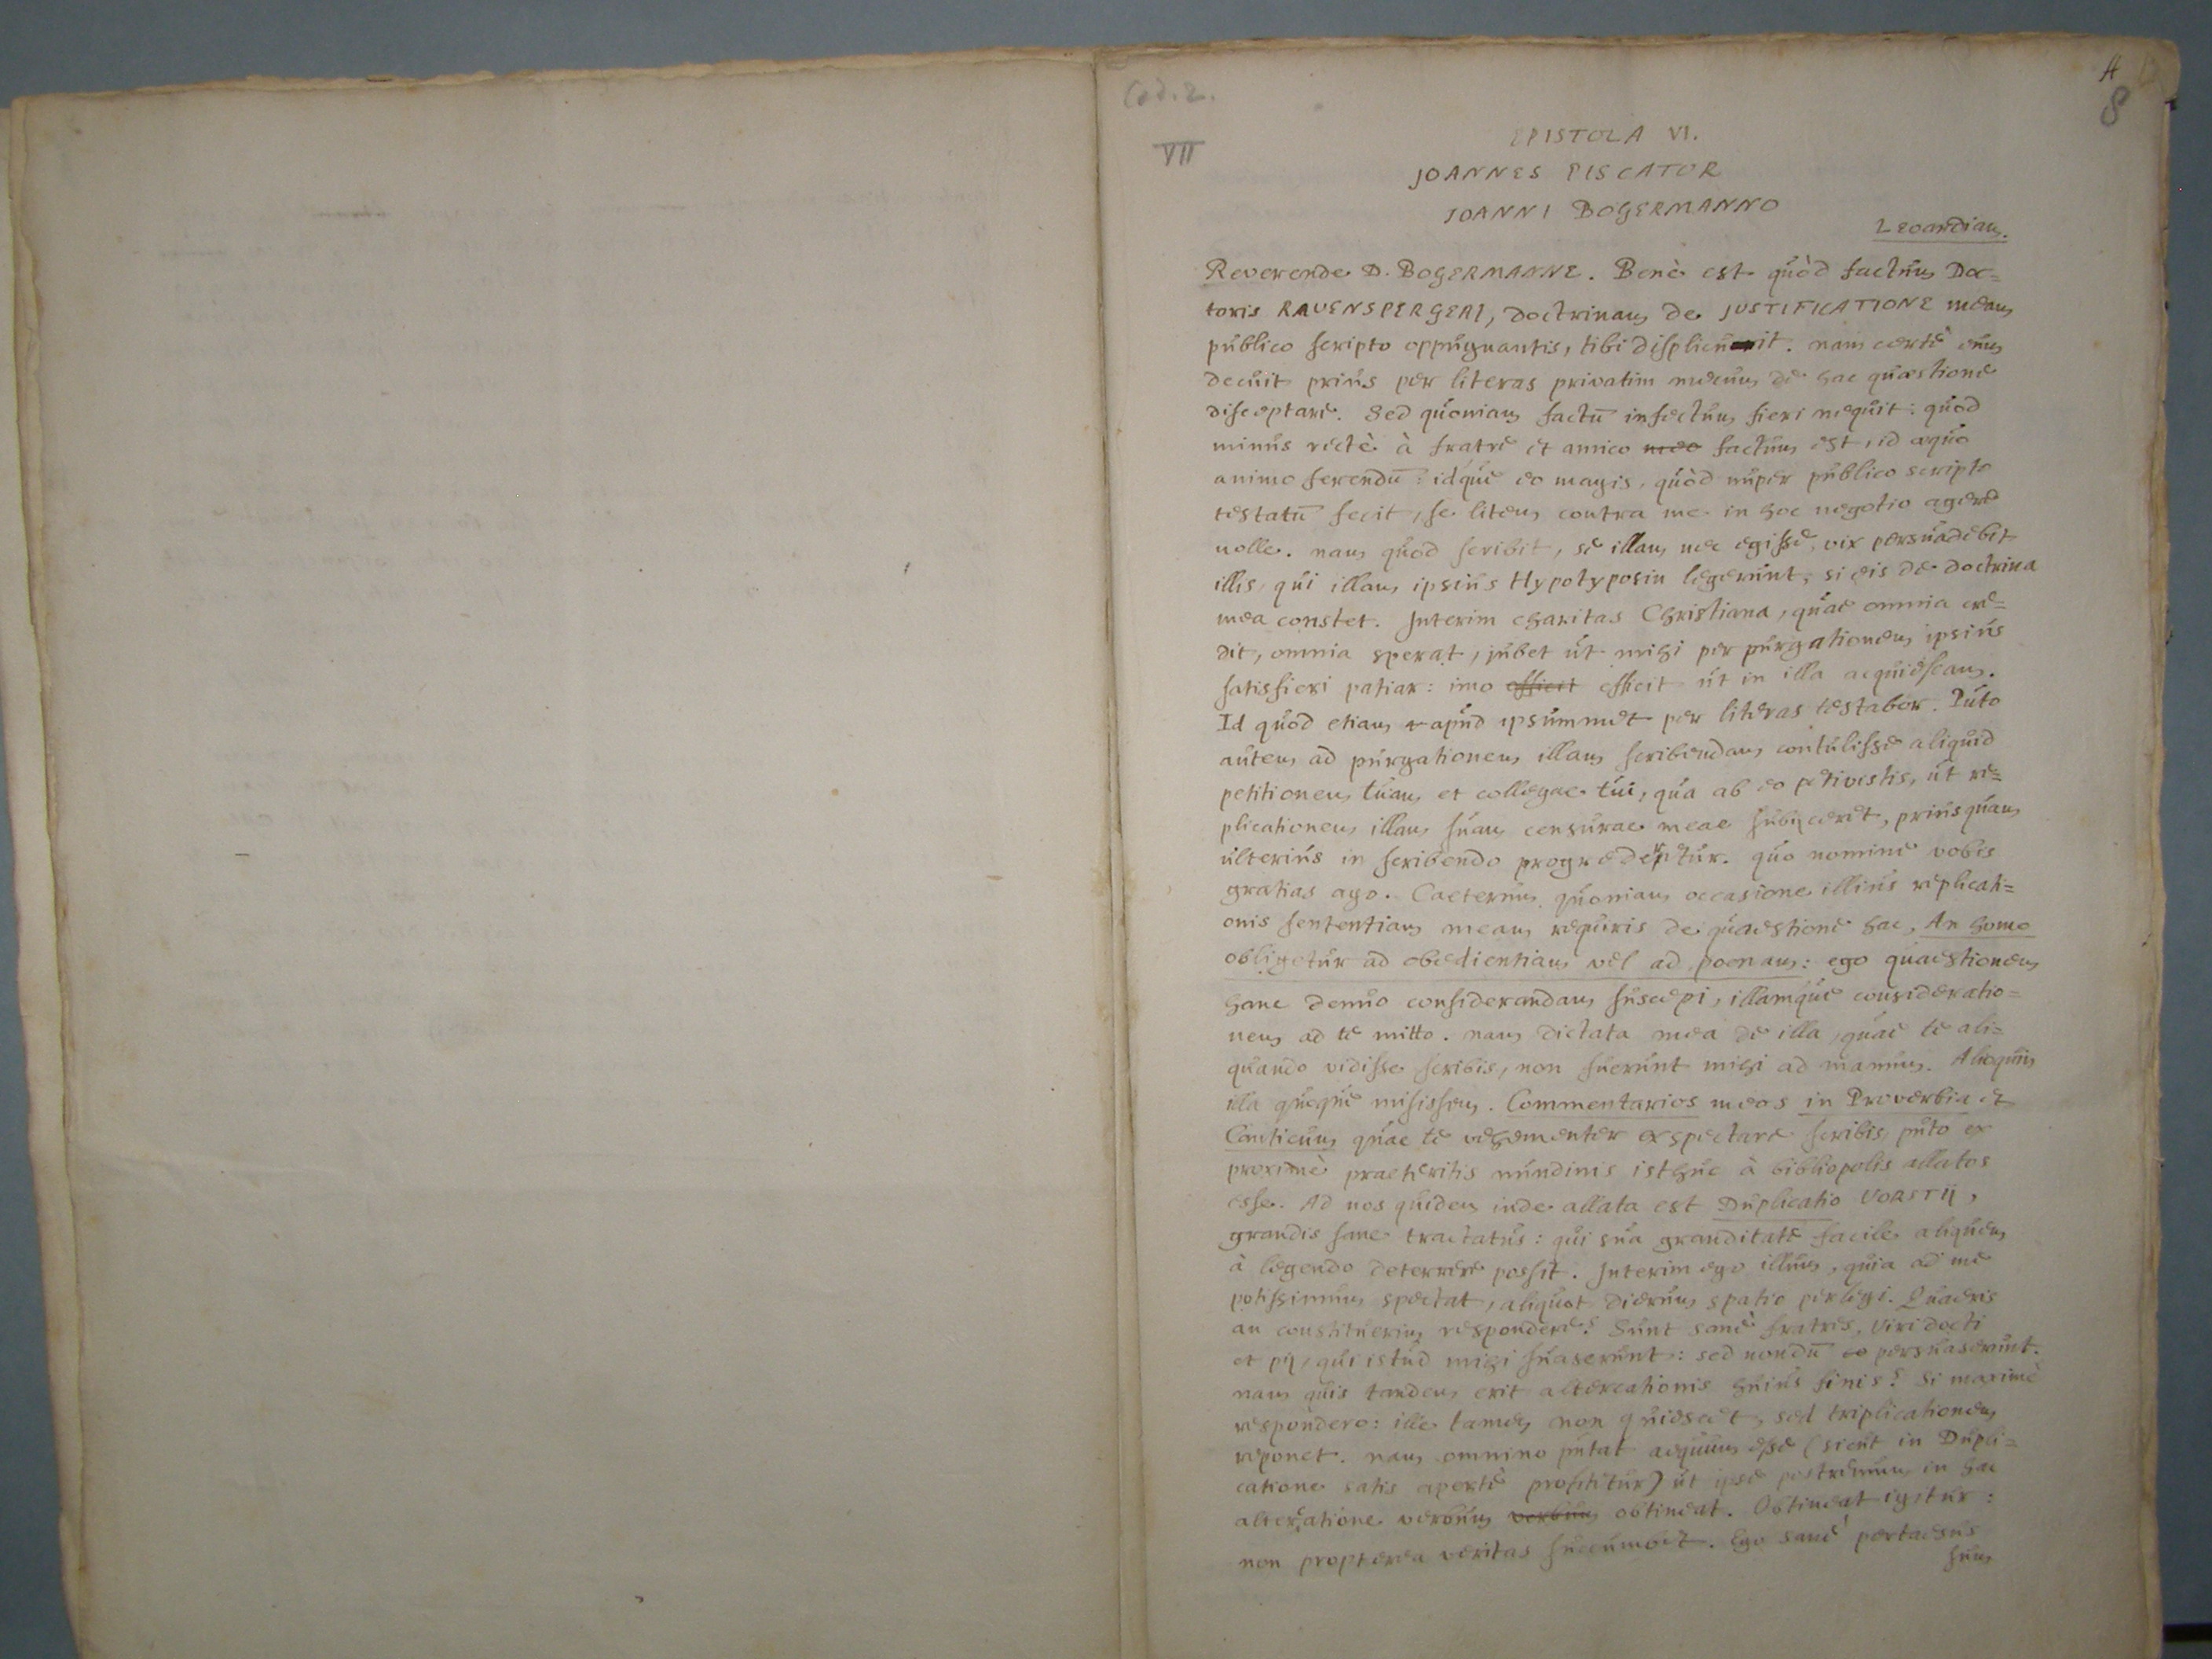 Cod. 2.
4
8
VII
EPISTOLA VI.
JOANNES PISCATOR
IOANNI BOGERMANNO
Leoardiam.
Reverende D. BOGERMANNE. Benè est quòd factum Doc=
toris RAVENSPERGERI, doctrinam de JUSTIFICATIONE meam
publico scripto oppugnantis, tibi displicuerit. nam certè eum
decuit prius per literas privatim mecum de hac quaestione
disceptare. Sed quoniam factū infectum fieri nequit: quod
minus rectè à fratre et amico meo factum est, id aequo
animo ferendū: idque eo magis, quòd nuper publico scripto
testatū fecit, se litem contra me in hoc negotio agere
nolle. nam quod scribit, se illam nec egisse, vix persuadebit
illis, qui illam ipsius Hypotyposin legerunt, si eis de doctrina
mea constet. Interim charitas Christiana, quae omnia cre=
dit, omnia sperat, jubet ut mihi per purgationem ipsius
satisfieri patiar: imo efficit efficit ut in illa acquiescam.
Id quod etiam apud ipsummet per literas testabor. Puto
autem ad purgationem illam scribendam contulisse aliquid
petitionem tuam et collegae tui, qua ab eo petivistis, ut re=
plicationem illam suam censurae meae subijceret, priusquam
ulterius in scribendo progrederetur. quo nomine vobis
gratias ago. Caeterum quoniam occasione illius replicati=
onis sententiam meam requiris de quaestione hac, An homo
obligetur ad obedientiam vel ad poenam: ego quaestionem
hanc denuo considerandam suscepi, illamque consideratio=
nem ad te mitto. nam dictata mea de illa, quae te ali=
quando vidisse scribis, non fuerunt mihi ad manum. Alioquin
illa quoque misissem. Commentarios meos in Proverbia et
Canticum quae te vehementer exspectare scribis, puto ex
proximè praeteritis nundinis isthuc à bibliopolis allatos
esse. Ad nos quidem inde allata est Duplicatio VORSTII,
grandis sane tractatus: qui sua granditate facile aliquem
à legendo deterrere possit. Interim ego illum, quia ad me
potissimum spectat, aliquot dierum spatio perlegi. Quaeris
an constituerim respondere? Sunt sanè fratres, viri docti
et pij, qui istud mihi suaserunt: sed nondū persuaserunt.
nam quis tandem erit altercationis huius finis? Si maximè
respondero: ille tamen non quiescet, sed triplicationem
reponet. nam omnino putat aequum esse (sicut in Dupli=
catione satis apertè profitetur) ut ipse postremum in hac
altercatione verbum verbum obtineat. Obtineat igitur:
non propterea veritas succumbet. Ego sanè pertaesus
sum